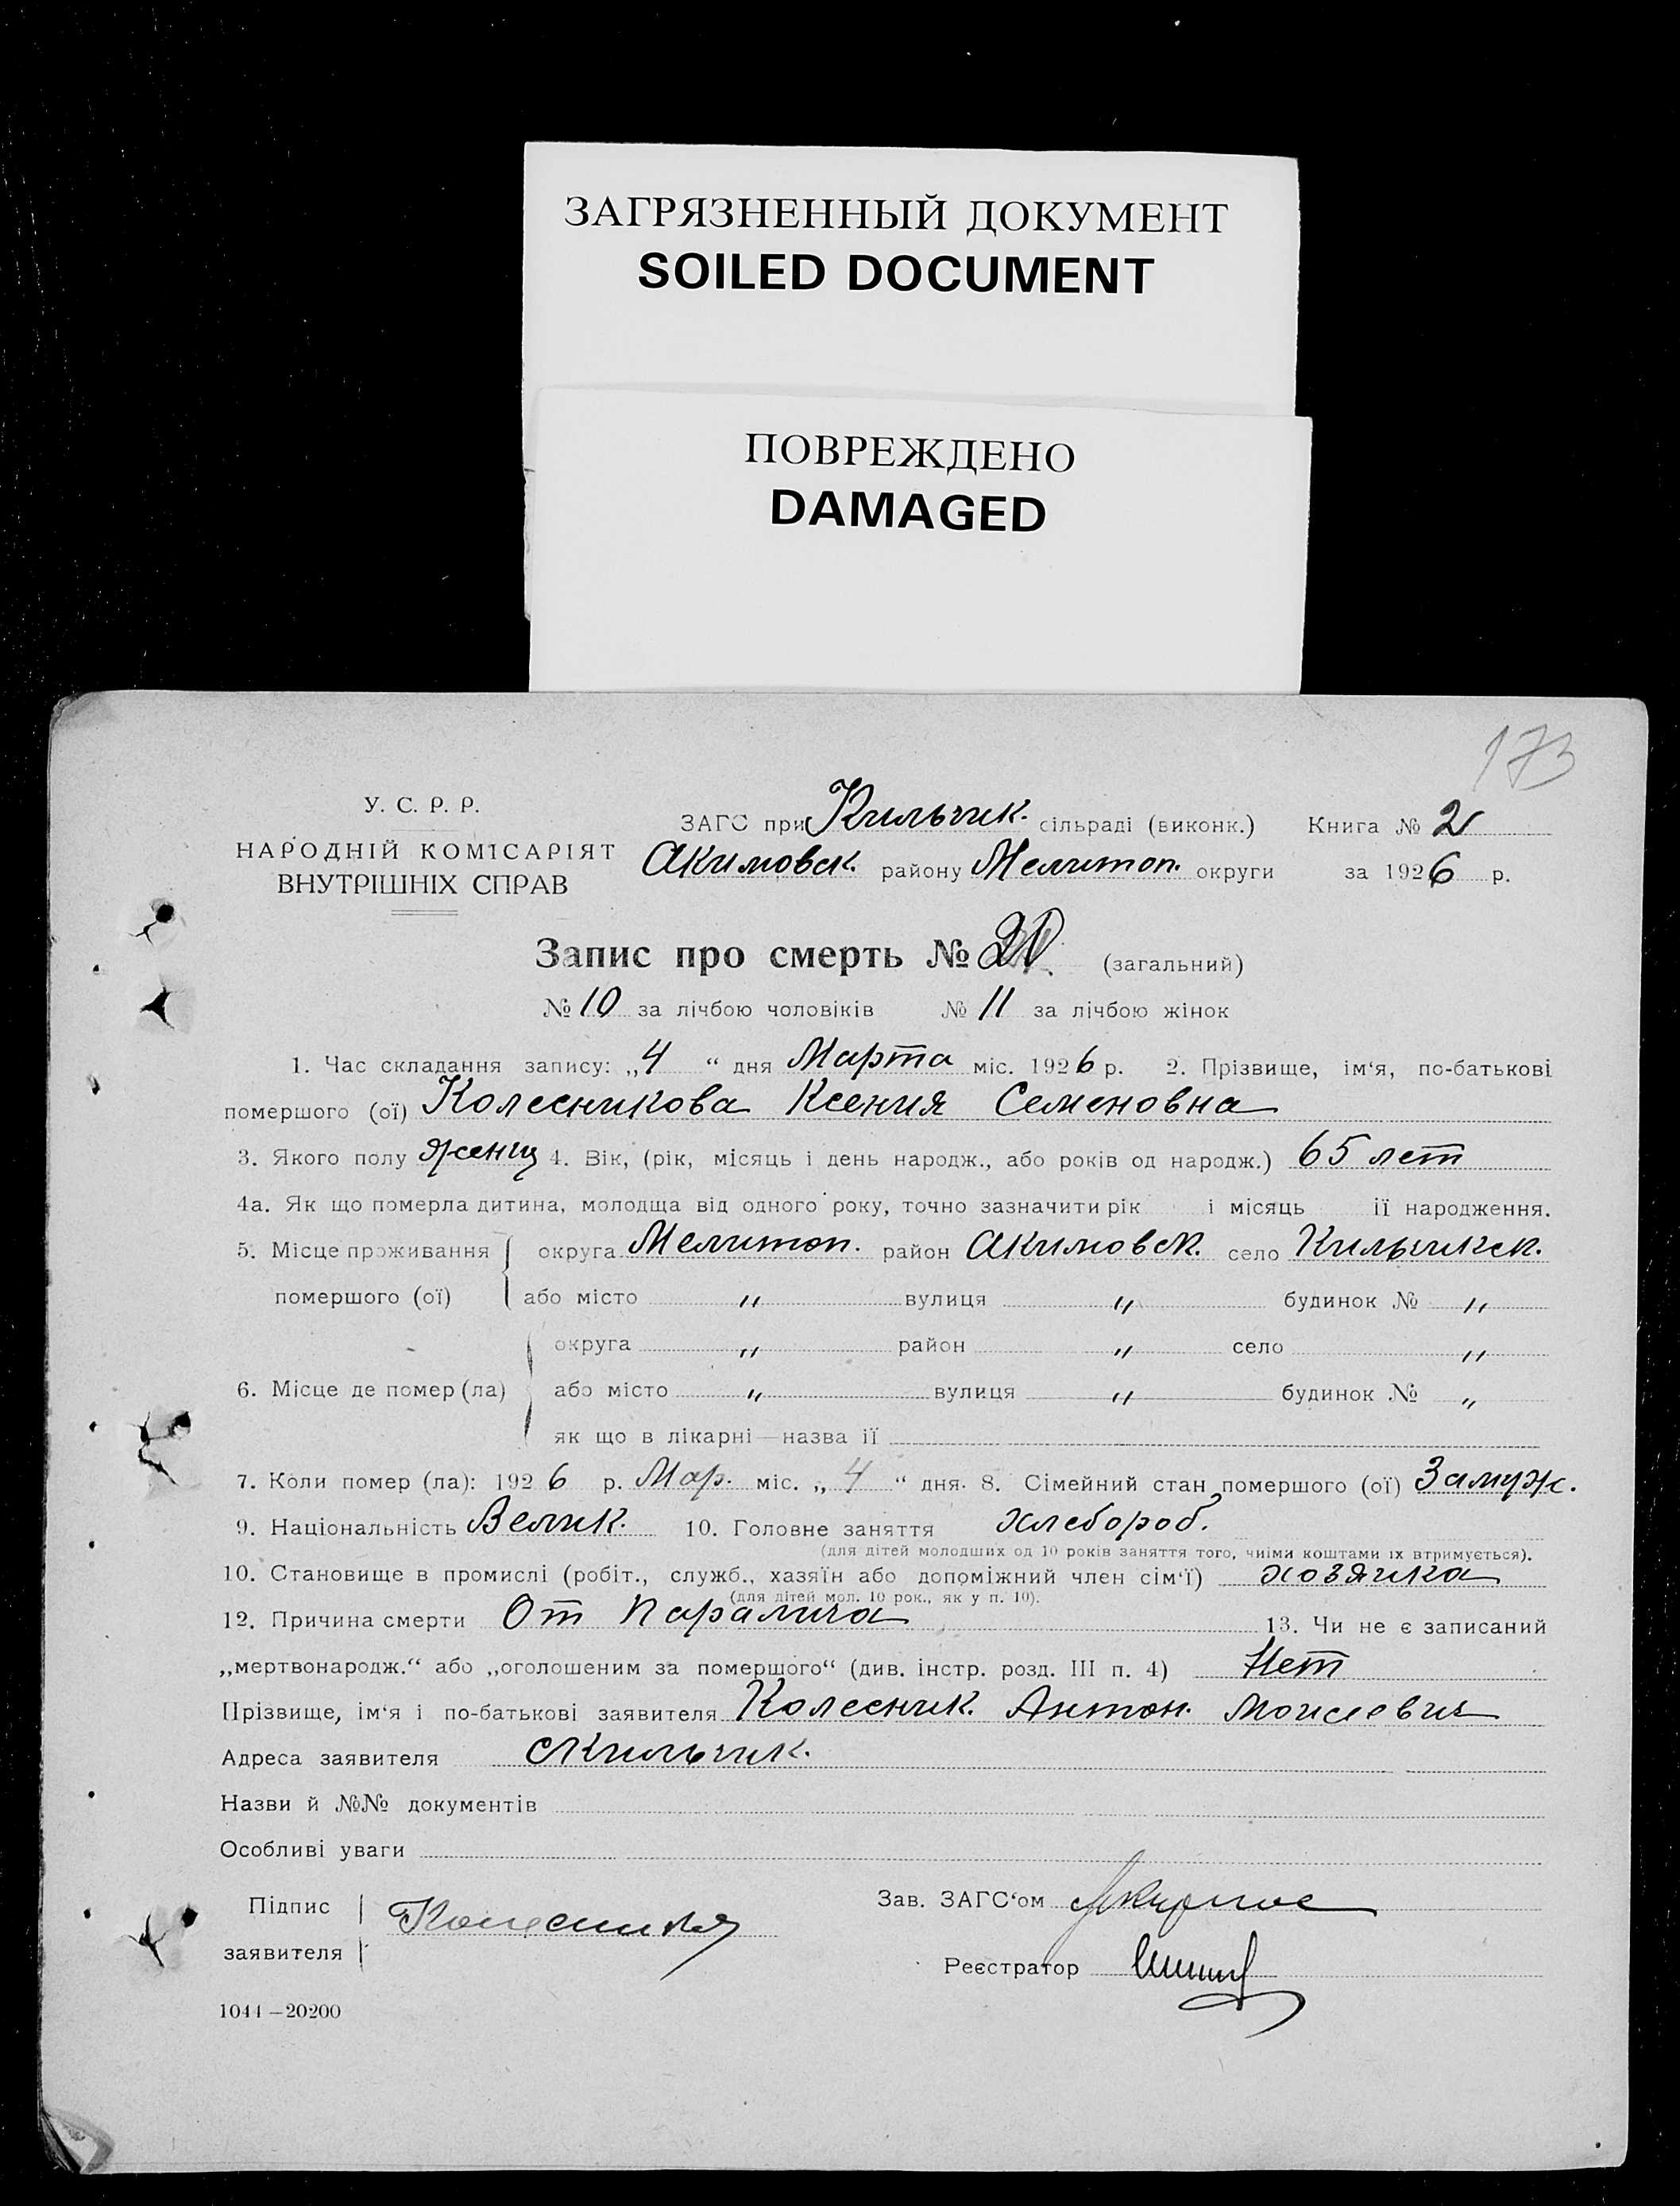 ЗАГРЯЗНЕННЫЙ ДОКУМЕНТ
SOILED DOCUMENT
ПОВРЕЖДЕНО
DAMAGED
173
У. С. Р. Р.
НАРОДНІЙ КОМІСАРІЯТ
ВНУТРІШНІХ СПРАВ
ЗАГС при Кильчик. сільраді (виконк.) Книга № 2
Акимовск. району Мелитоп. округи за 1926 р.
Запис про смерть № (загальний)
№ 10 за лічбою чоловіків № 11 за лічбою жінок
1. Час складання запису: „4“ дня Марта міс. 1926 р. 2. Прізвище, ім‘я, по-батькові
помершого (ої) Колесникова Ксения Семеновна
3. Якого полу женщ 4. Вік, (рік, місяць і день народж., або років од народж.) 65 лет
4а. Як що померла дитина, молодща від одного року, точно зазначити рік і місяць її народження.
5. Місце проживання округа Мелитоп. район Акимовск. село Кильчикск.
помершого (ої) або місто " вулиця " будинок № "
округа " район " село "
6. Місце де помер (ла) або місто " вулиця " будинок № "
як що в лікарні—назва її
7. Коли помер (ла): 1926 р. Мар. міс. „4“ дня. 8. Сімейний стан помершого (ої) Замуж.
9. Національність Велик. 10. Головне заняття хлебороб.
(для дітей молодших од 10 років заняття того, чиїми коштами їх втримується).
10. Становище в промислі (робіт., служб., хазяїн або допоміжний член сім‘ї) хозячка
(для дітей мол. 10 рок., як у п. 10).
12. Причина смерти От Паралича 13. Чи не є записаний
„мертвонародж.“ або „оголошеним за помершого“ (див. інстр. розд. III п. 4) Нет
Прізвище, ім‘я і по-батькові заявителя Колесник. Антон. Моисеевич
Адреса заявителя с Кильчик.
Назви й №№ документів
Особливі уваги
Підпис
заявителя
Зав. ЗАГС‘ом
Реєстратор
1044—20200